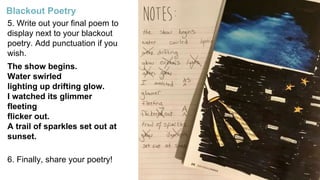 Blackout Poetry
5. Write out your final poem to
display next to your blackout
poetry. Add punctuation if you
wish.
The show begins.
Water swirled
lighting up drifting glow.
I watched its glimmer
fleeting
flicker out.
A trail of sparkles set out at
sunset.
6. Finally, share your poetry!
NOTES:
the show begins
water swirled
drifting
glow
I watched
glimmer
fleeting
out
trail of
set out at